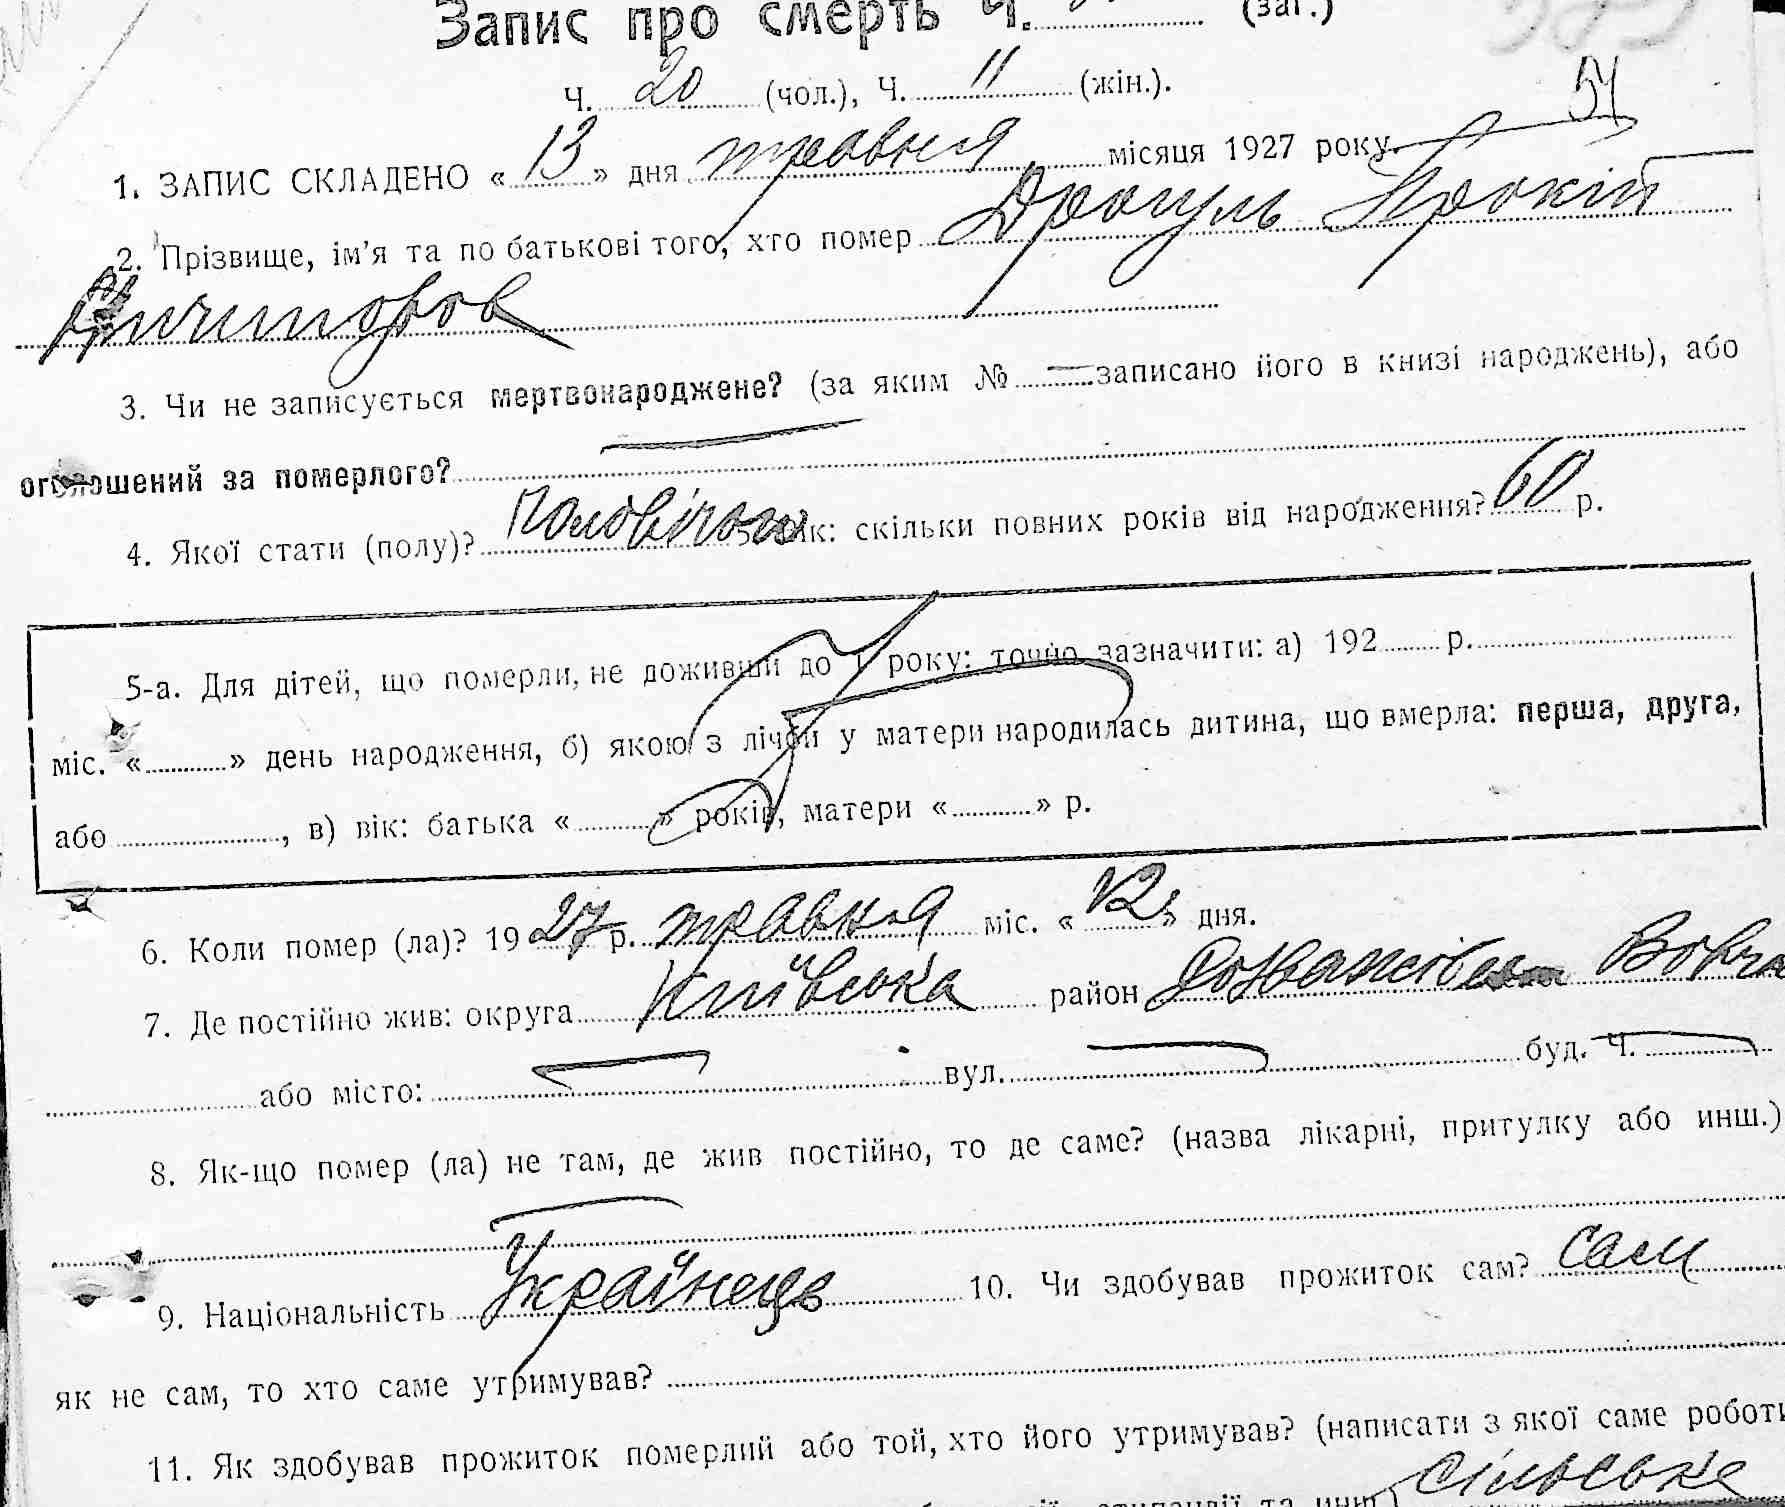 Запис про смерть Ч. (заг.)
Ч. 20 (чол.), Ч. 11 (жін.).
54
1. ЗАПИС СКЛАДЕНО « 13 » дня травня місяця 1927 року.
2. Прізвище, ім'я та по батькові того, хто помер Дрогуль Прокіп
3. Чи не записується мертвонароджене? (за яким № — записано його в книзі народжень), або
оголошений за померлого? —
4. Якої стати (полу)? вік: скільки повних років від народження? 60 р.
5-а. Для дітей, що померли, не доживши до 1 року: точно зазначити: а) 192 р.
міс. « » день народження, б) якою з лічби у матери народилась дитина, що вмерла: перша, друга,
або , в) вік: батька « » років, матери « » р.
6. Коли помер (ла)? 19 27 р. травня міс. « 12 » дня.
7. Де постійно жив: округа Київська район
або місто: — вул. — буд. Ч. —
8. Як-що помер (ла) не там, де жив постійно, то де саме? (назва лікарні, притулку або инш.)
—
9. Національність Українець 10. Чи здобував прожиток сам? сам
як не сам, то хто саме утримував?
11. Як здобував прожиток померлий або той, хто його утримував? (написати з якої саме роботи
сільське